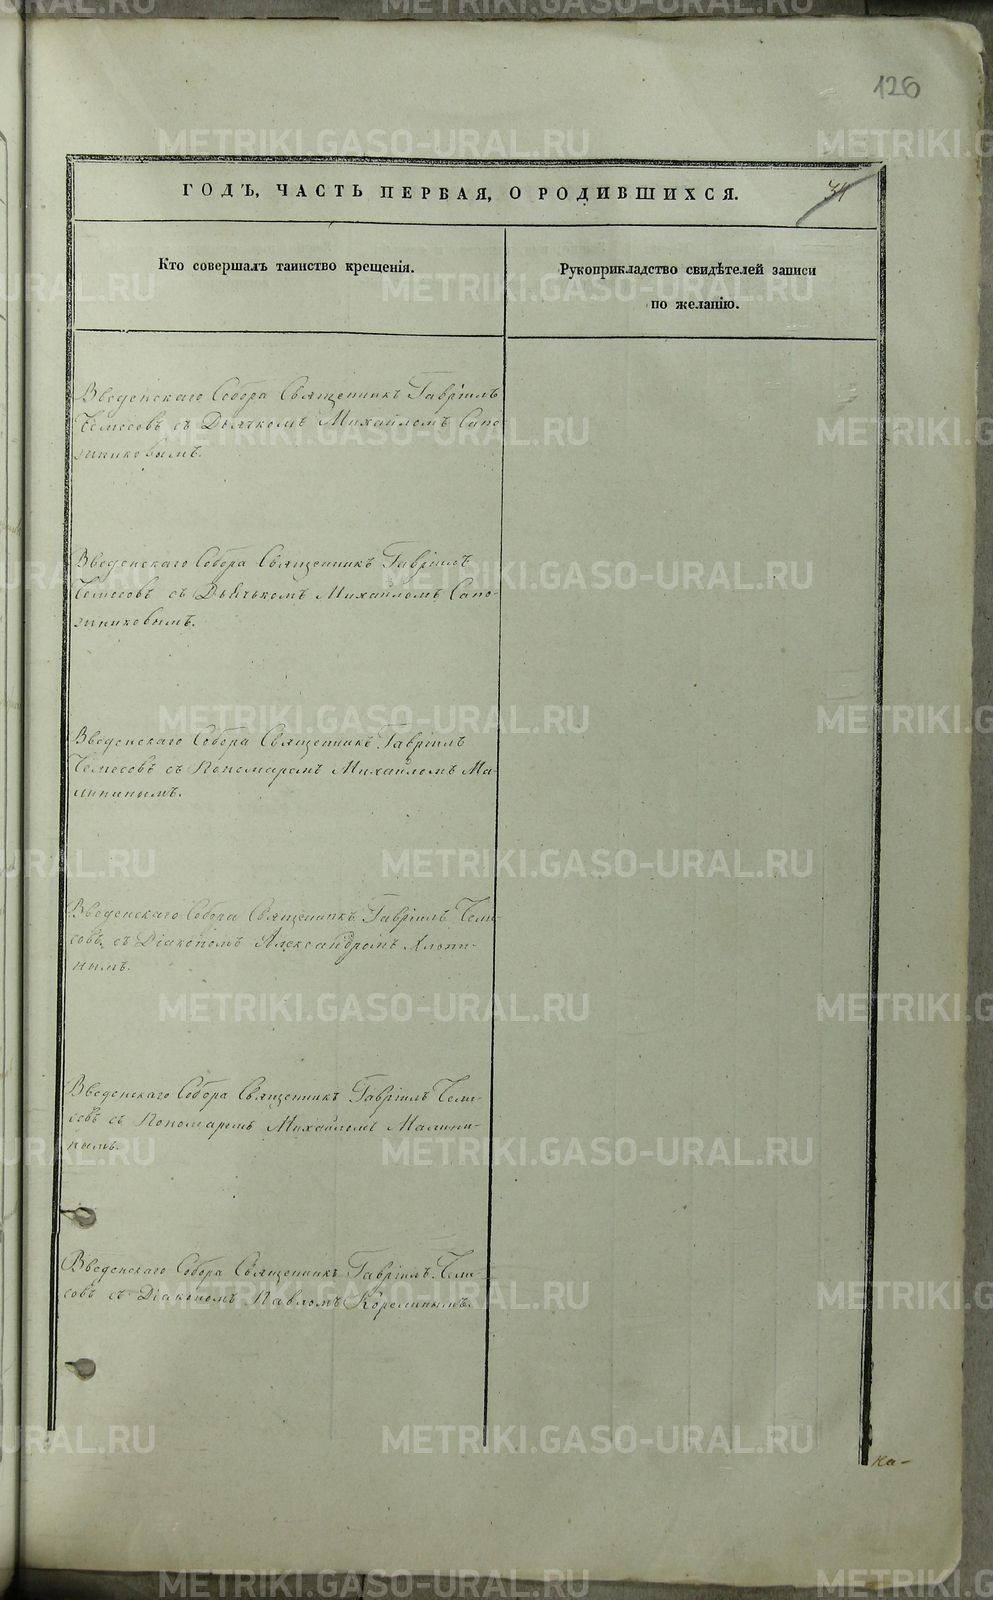 126
ГОДЪ, ЧАСТЬ ПЕРВАЯ, О РОДИВШИХСЯ.
34
Кто совершалъ таинство крещенія.
Рукоприкладство свидѣтелей записи
по желанію.
Введенскаго Собора Священникъ Гавріилъ
Чемесовъ съ Дьячкомъ Михайломъ Сапо-
жниковымъ.
Введенскаго Собора Священникъ Гавріилъ
Чемесовъ съ Дьячькомъ Михайломъ Сапо-
жниковымъ.
Введенскаго Собора Священникъ Гавріилъ
Чемесовъ съ Пономаремъ Михайломъ Ма-
лининымъ.
Введенскаго Собора Священникъ Гавріилъ Чеме-
совъ съ Діакономъ Александромъ Хлопи-
нымъ.
Введенскаго Собора Священникъ Гавріилъ Чеме-
совъ съ Пономаремъ Михайломъ Малини-
нымъ.
Введенскаго Собора Священникъ Гавріилъ Чеме-
совъ съ Діакономъ Павломъ Корелинымъ.
ка-
METRIKI.GASO-URAL.RU